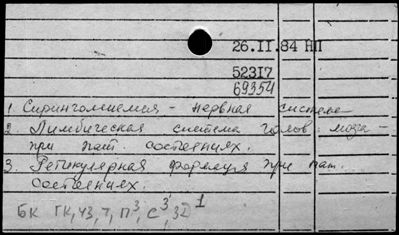 26.II.84 НП
52317
69354
1. Сирингомиемия - нервная система
2. Лимбическая система голов. мозга -
при пат. состояниях.
3. Ретикулярная формация при пат.
состояниях.
БК ГК, ЧЗ, 7, П³, С³, 32¹